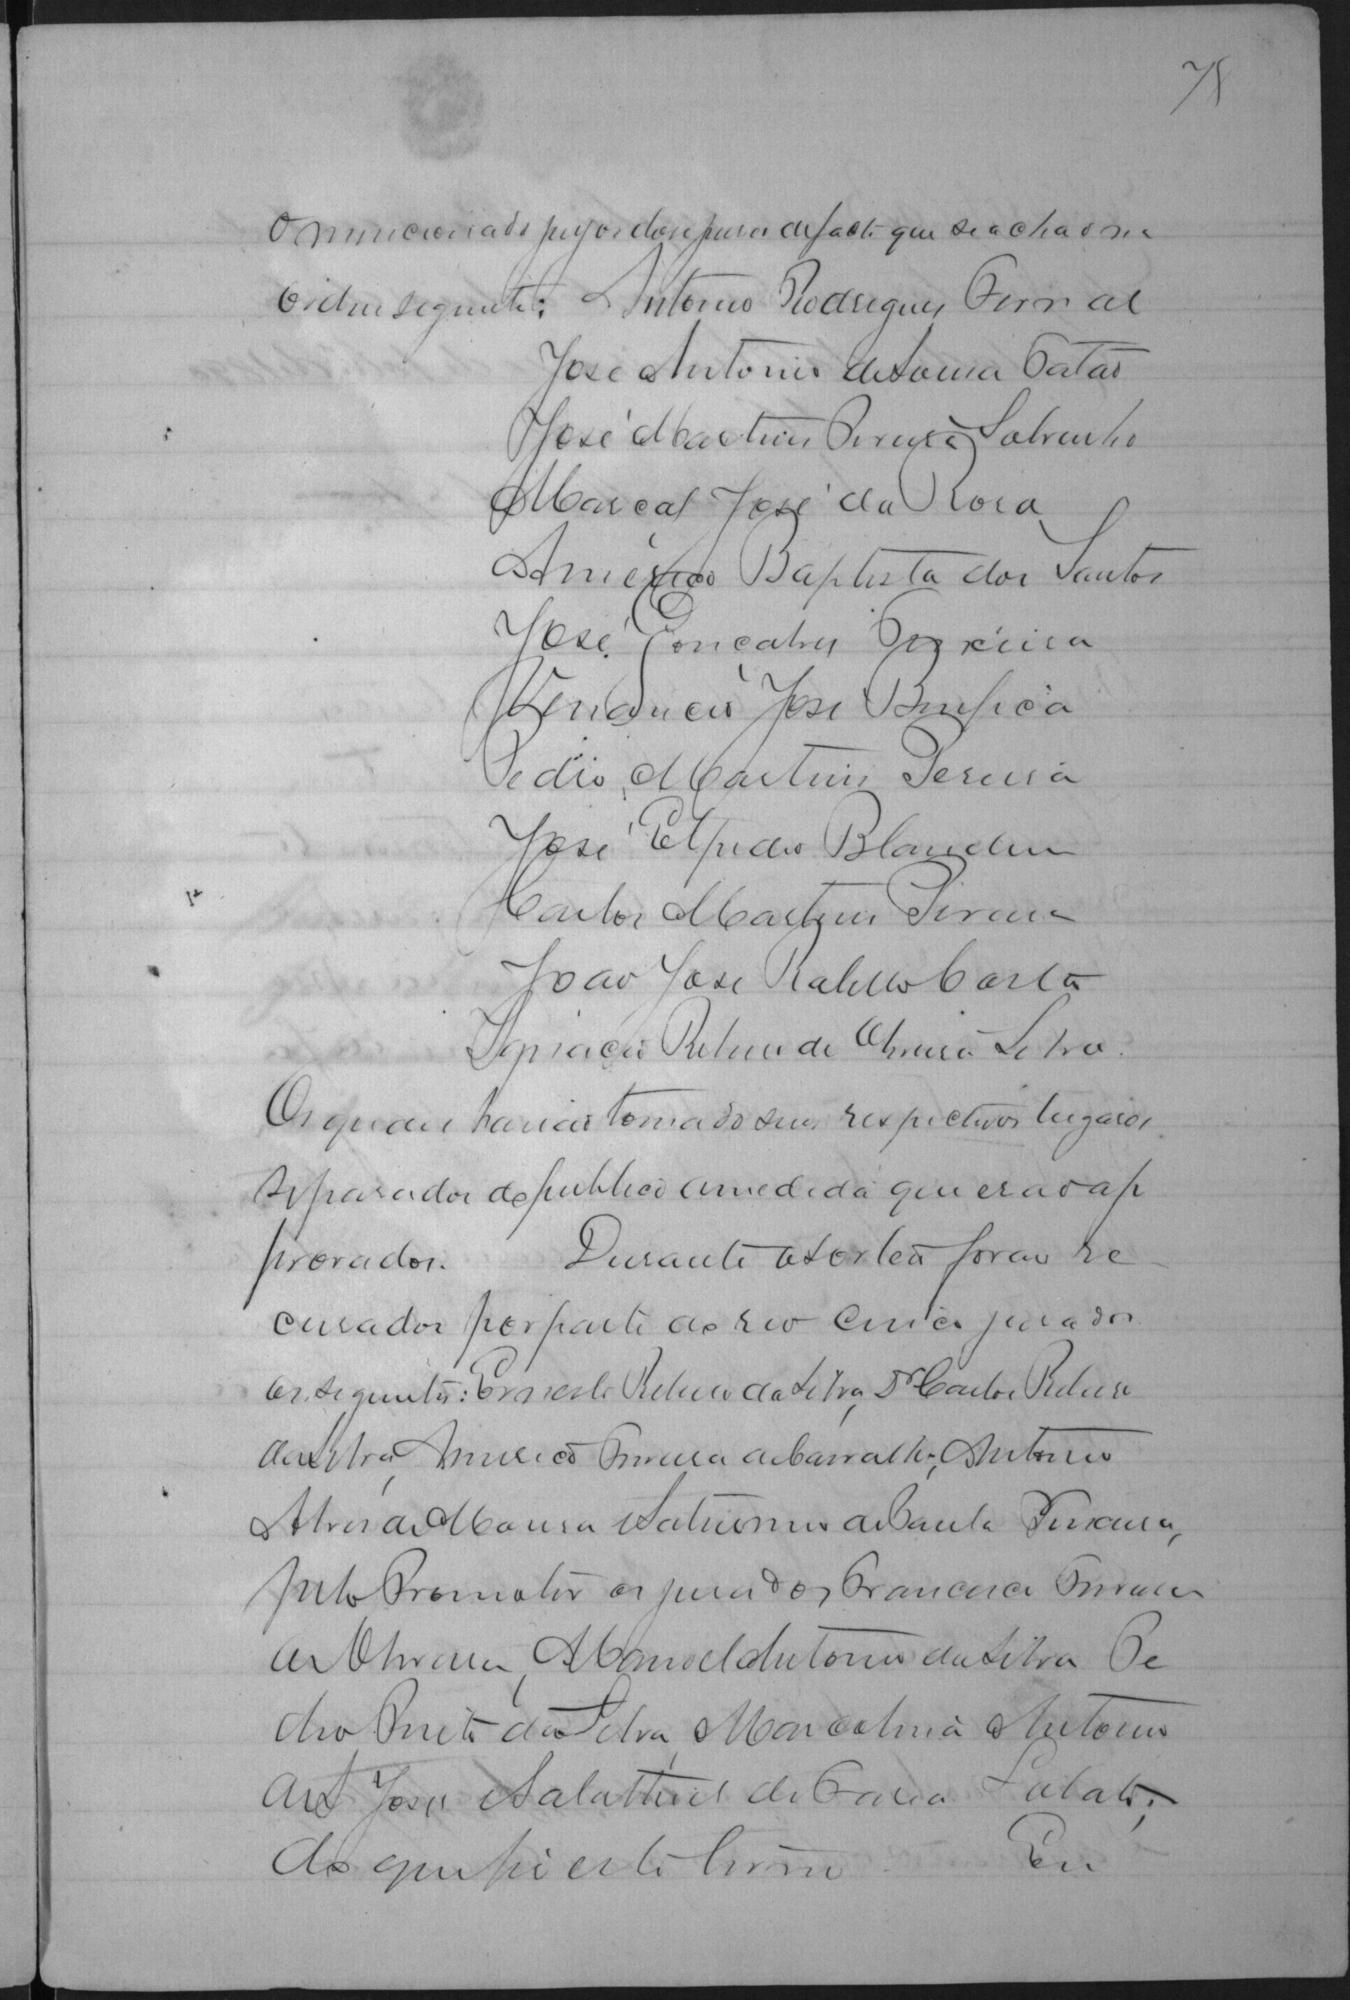 75
O mencionado jury os doze juizes de facto que se achao na
ordem seguinte: Antonio Rodrigues
José Antonio de Sousa Catão
José Martins Pereira Sobrinho
Marcal José da Rosa
Américo Baptista dos Santos
José Gonçalves
Venancio José Bemfica
Pedro Martins Pereira
José Elpidio Blandin
Carlos Martins Pereira
Joao José Rabello Costa
Ignacio Ribeiro de Oliveira Silva.
Os quaes haviao tomado seus respectivos lugares
separados do publico a medida que erao ap
provados. Durante o sorteio forao re
cusados por parte do reo cinco jurados
os seguintes: Ernesto Ribeiro da Silva, Dr Carlos Ribeiro
da Silva, Americo Ferreira de Carvalho, Antonio
Alves de Moura Saturnino de Paula
pelo Promotor os jurados Francisco Ferreira
de Oliveira, Manoel Antonio da Silva Pe
dro da Silva, Antonio
José Salathiel de Faria Lobato;
do que fiz este termo. Eu